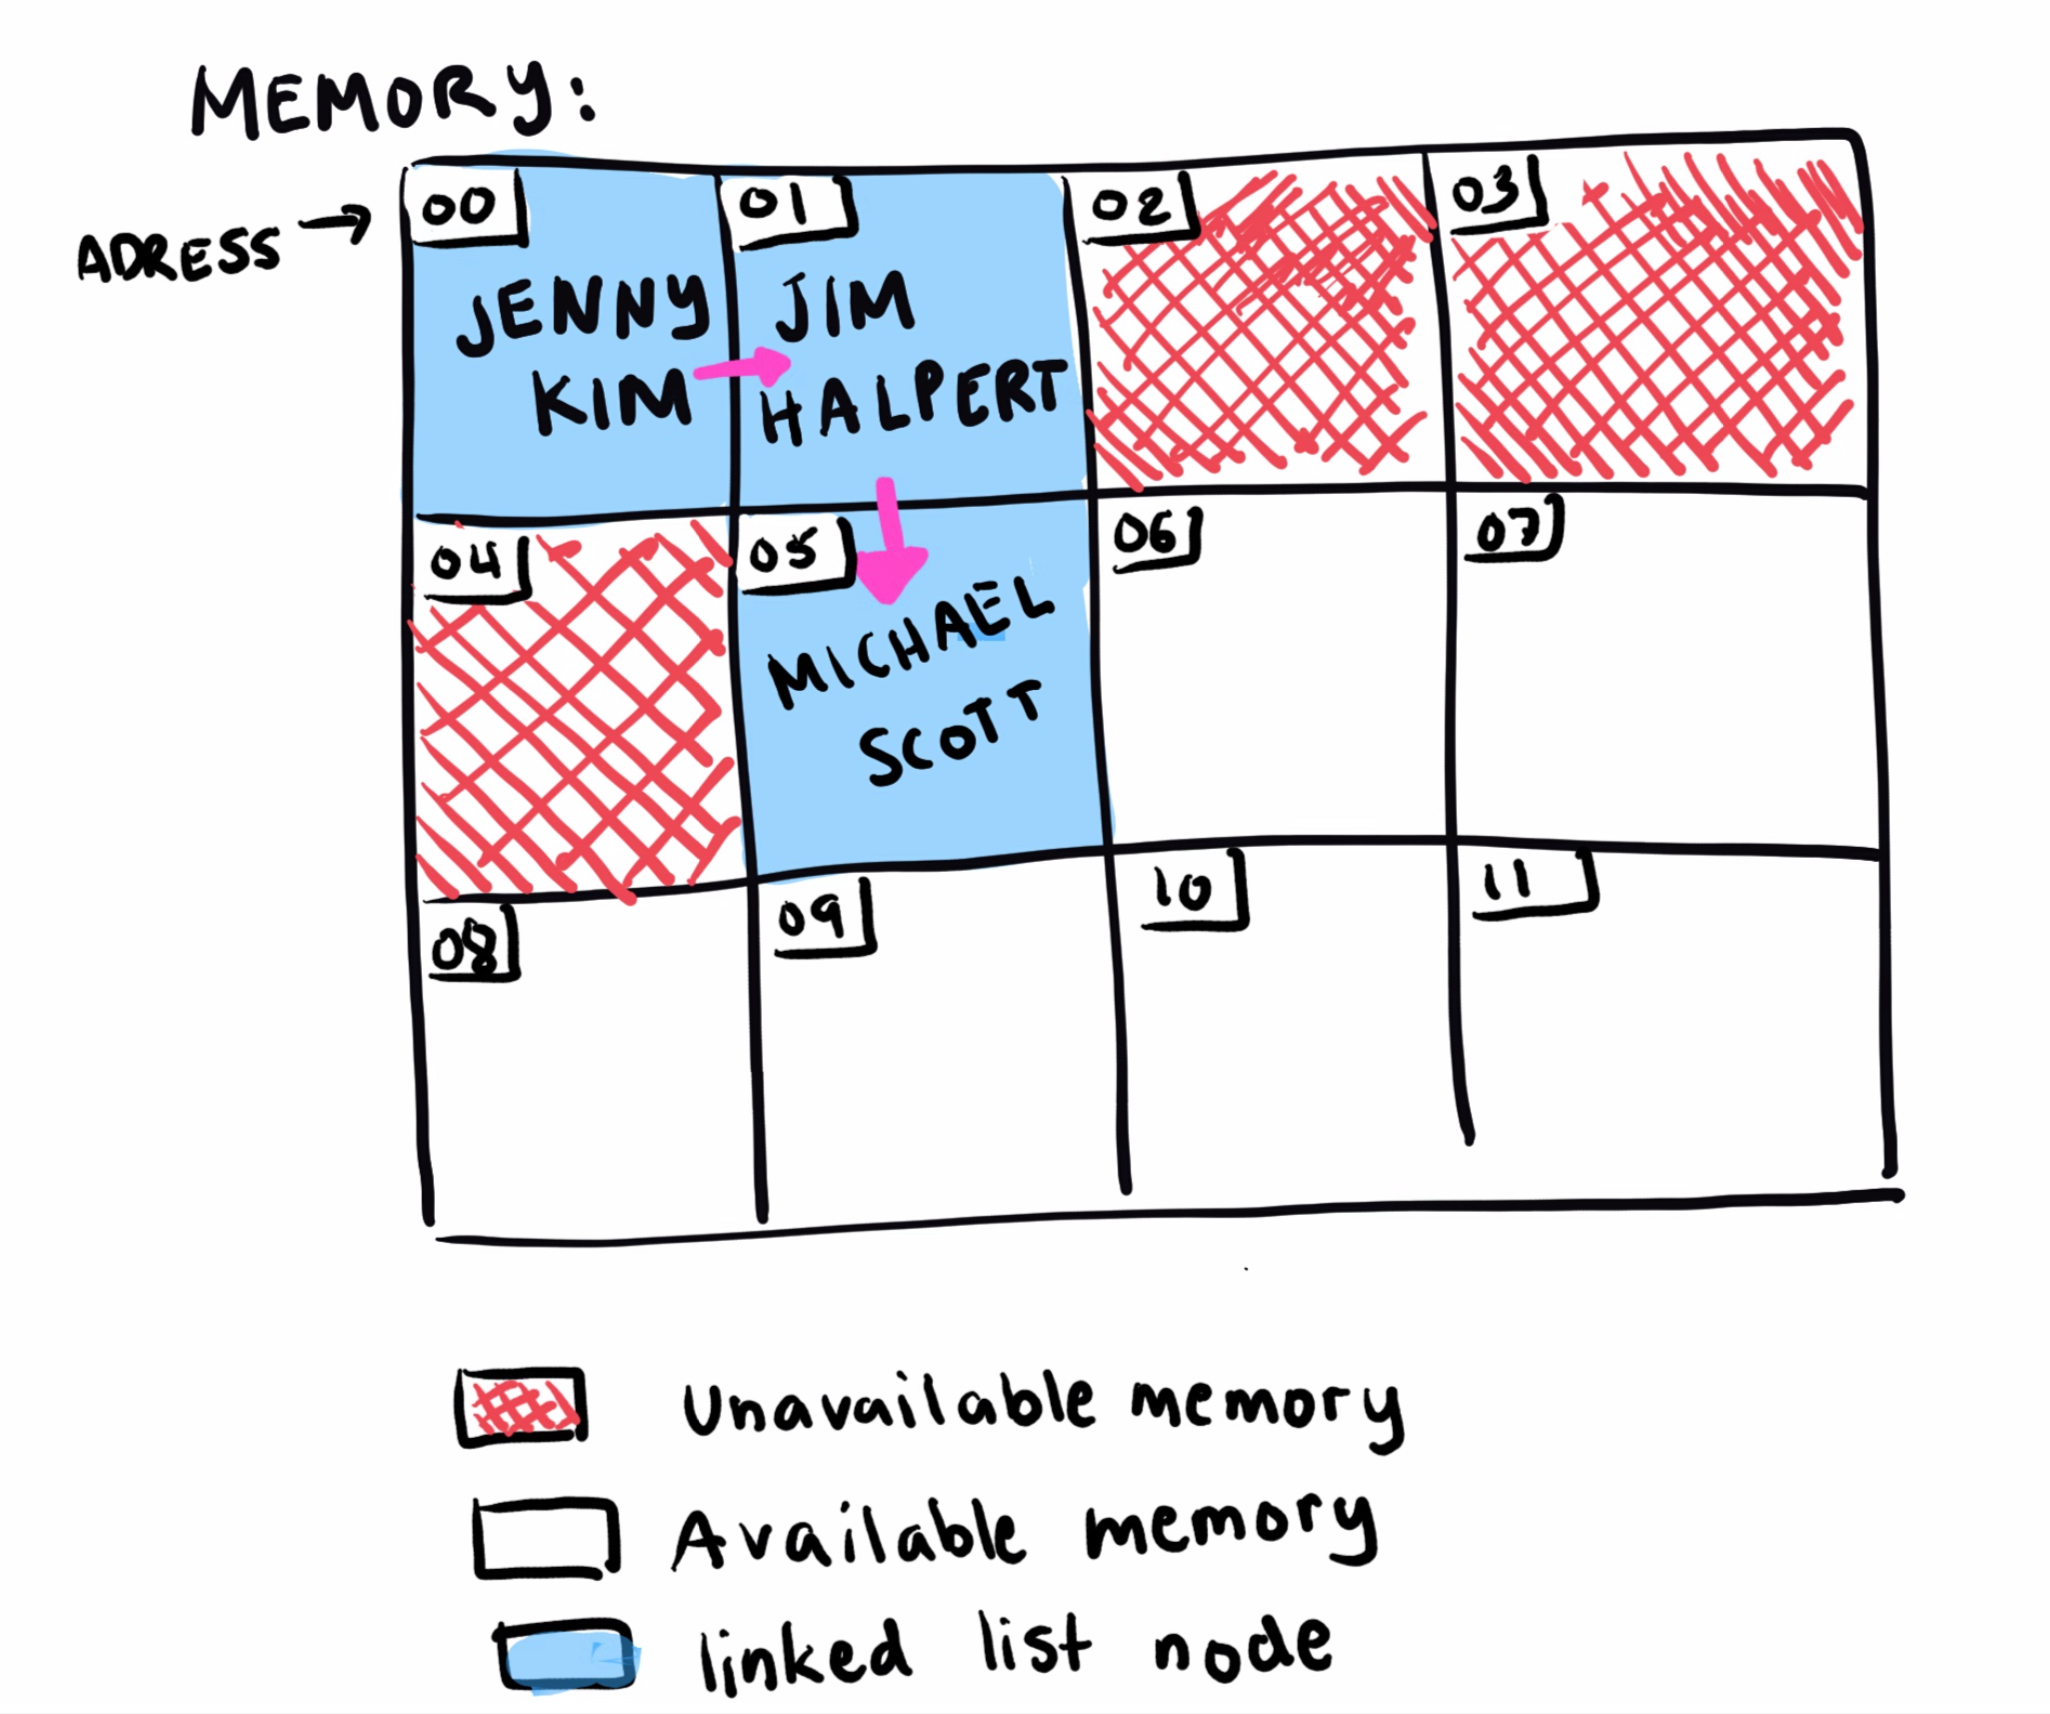 MEMORY:
ADRESS →
00
01
02
03
JENNY
KIM
JIM
HALPERT
04
05
06
07
MICHAEL
SCOTT
08
09
10
11
Unavailable memory
Available memory
linked list node